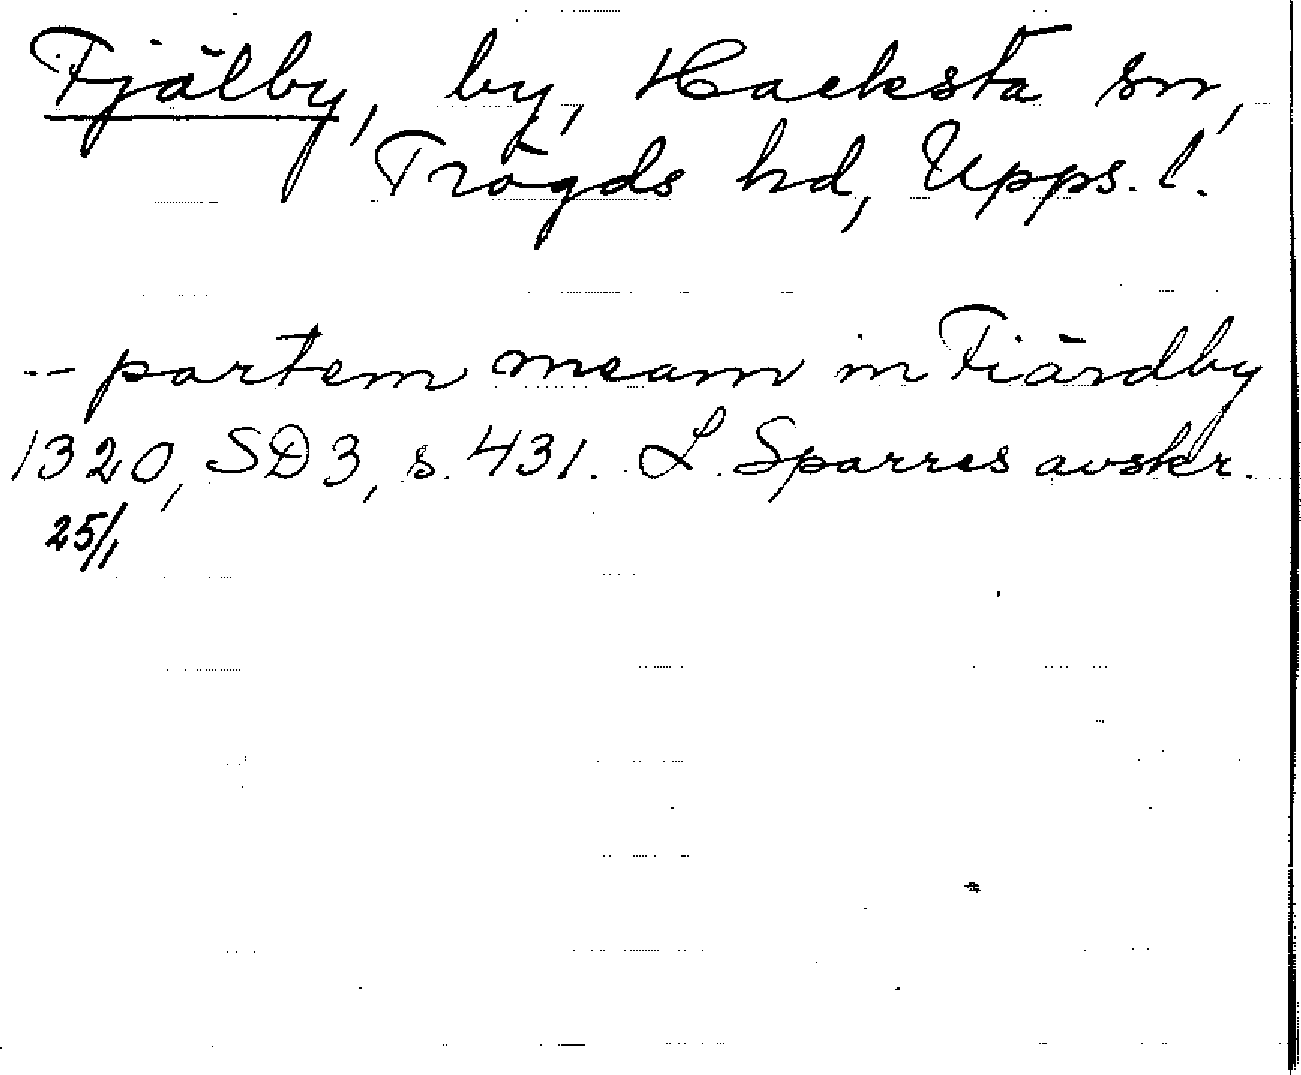 Fjälby, by, Hacksta sn,
Trögds hd, Upps. l.
-- partem meam in Fiärdby
1320, SD3, s. 431. L. Sparres avskr.
25/1